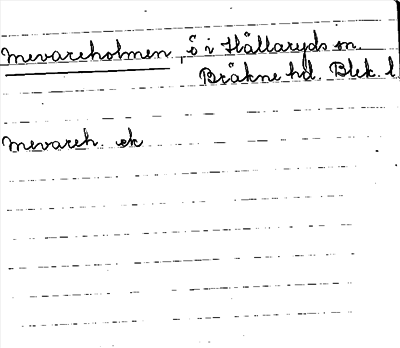 Mevareholmen, ö i Hällaryds sn.
Bräkne hd. Blek. l
Mevareh. ek